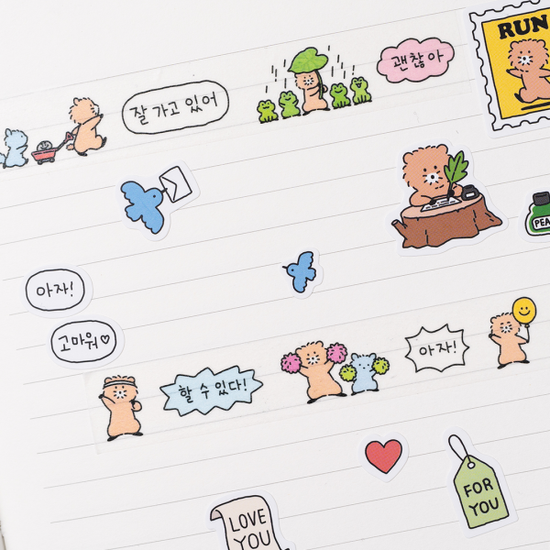 RUN
잘 가고 있어
괜찮아
아자!
고마워♡
할 수 있다!
아자!
FOR
YOU
LOVE
YOU